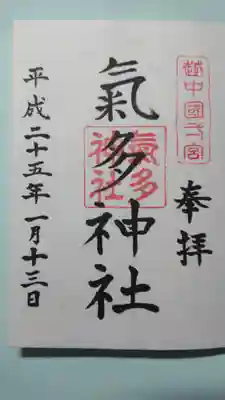 越中國一宮
奉拝
氣多神社
氣多神社
平成二十五年一月十三日